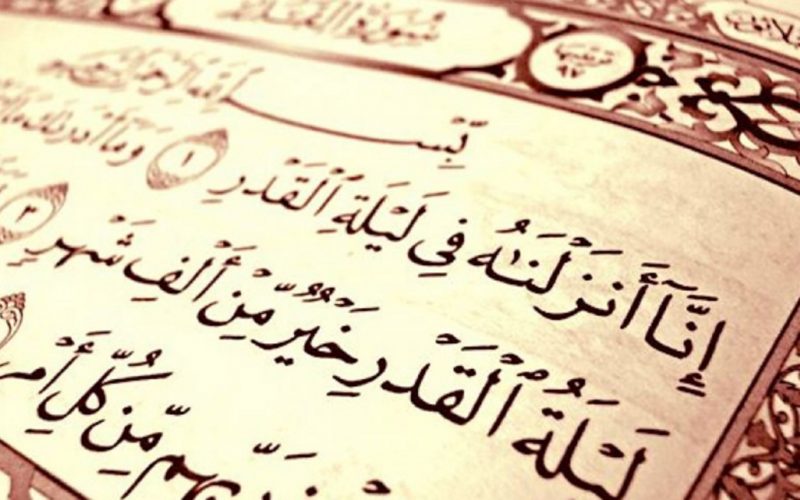 سُورَةُ القَدْرِ
ترتيبها ٩٧
بِسْمِ اللَّهِ الرَّحْمَٰنِ الرَّحِيمِ
إِنَّآ أَنزَلْنَٰهُ فِي لَيْلَةِ ٱلْقَدْرِ ١ وَمَآ أَدْرَىٰكَ مَا
لَيْلَةُ ٱلْقَدْرِ خَيْرٌ مِّنْ أَلْفِ شَهْرٍ ٣
رَبِّهِم مِّن كُلِّ أَمْرٍ